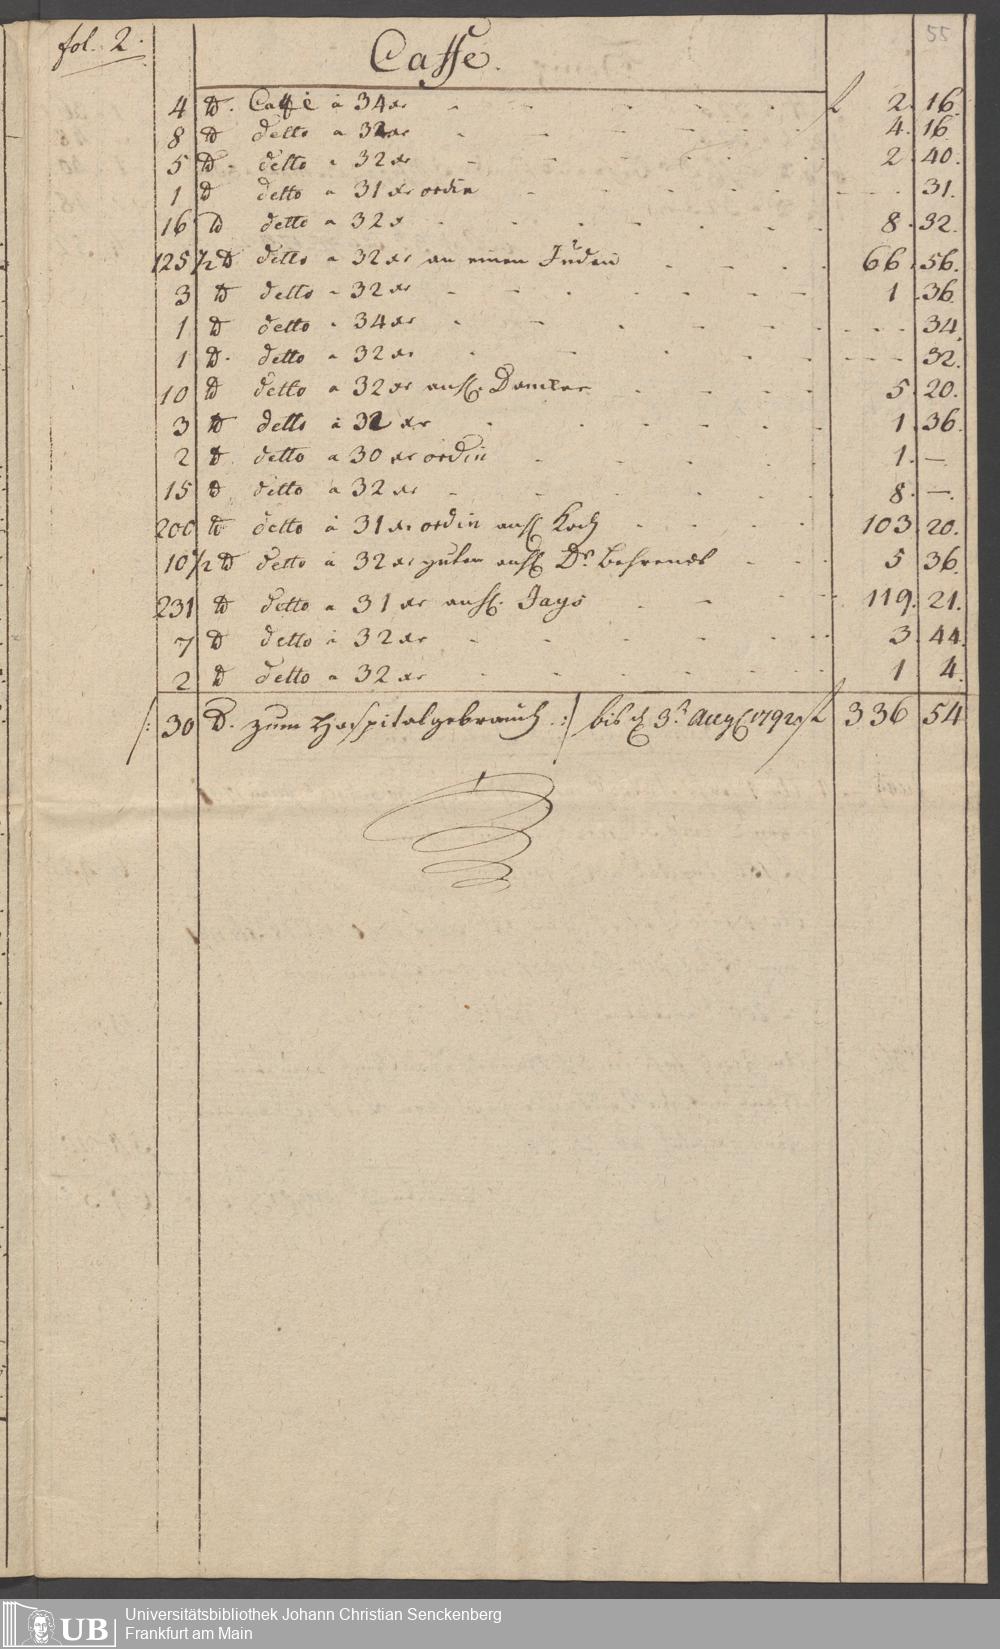 fol. 2.
55
Caffe.
4 ℔. Caffé à 34 xr - - - - - - f 2. 16.
8 ℔ detto a 32 xr - - - - - - 4. 16.
5 ℔. detto a 32 xr - - - - - - 2. 40.
1 ℔ detto a 31 xr ordin - - - - - - - - 31.
16 ℔ detto a 32 x - - - - - - 8. 32.
125 1/2 ℔ detto a 32 xr an einen Juden - - - - 66. 56.
3 ℔ detto a 32 xr - - - - - - - 1. 36.
1 ℔ detto a 34 xr - - - - - - - - 34.
1 ℔. detto a 32 xr - - - - - - - 32.
10 ℔ detto a 32 xr an H. - - - - 5. 20.
3 ℔ detto à 32 xr - - - - - - 1. 36.
2 ℔ detto a 30 xr ordin - - - - - 1. —
15 ℔ detto a 32 xr - - - - - - 8. —.
200 ℔ detto à 31 xr ordin an H. Koch - - - - 103. 20.
10 1/2 ℔ detto à 32 xr guten an H. Dr. Behrends - - - 5 36.
231 ℔ detto a 31 xr an H. Jays - - - - 119. 21.
7 ℔ detto à 32 xr - - - - - - 3. 44.
2 ℔ detto a 32 xr - - - - - - 1 4.
/: 30 ℔. zum Hospitalgebrauch :/ bis d. 3t Aug. 1792 f 336 54
UB
Universitätsbibliothek Johann Christian Senckenberg
Frankfurt am Main